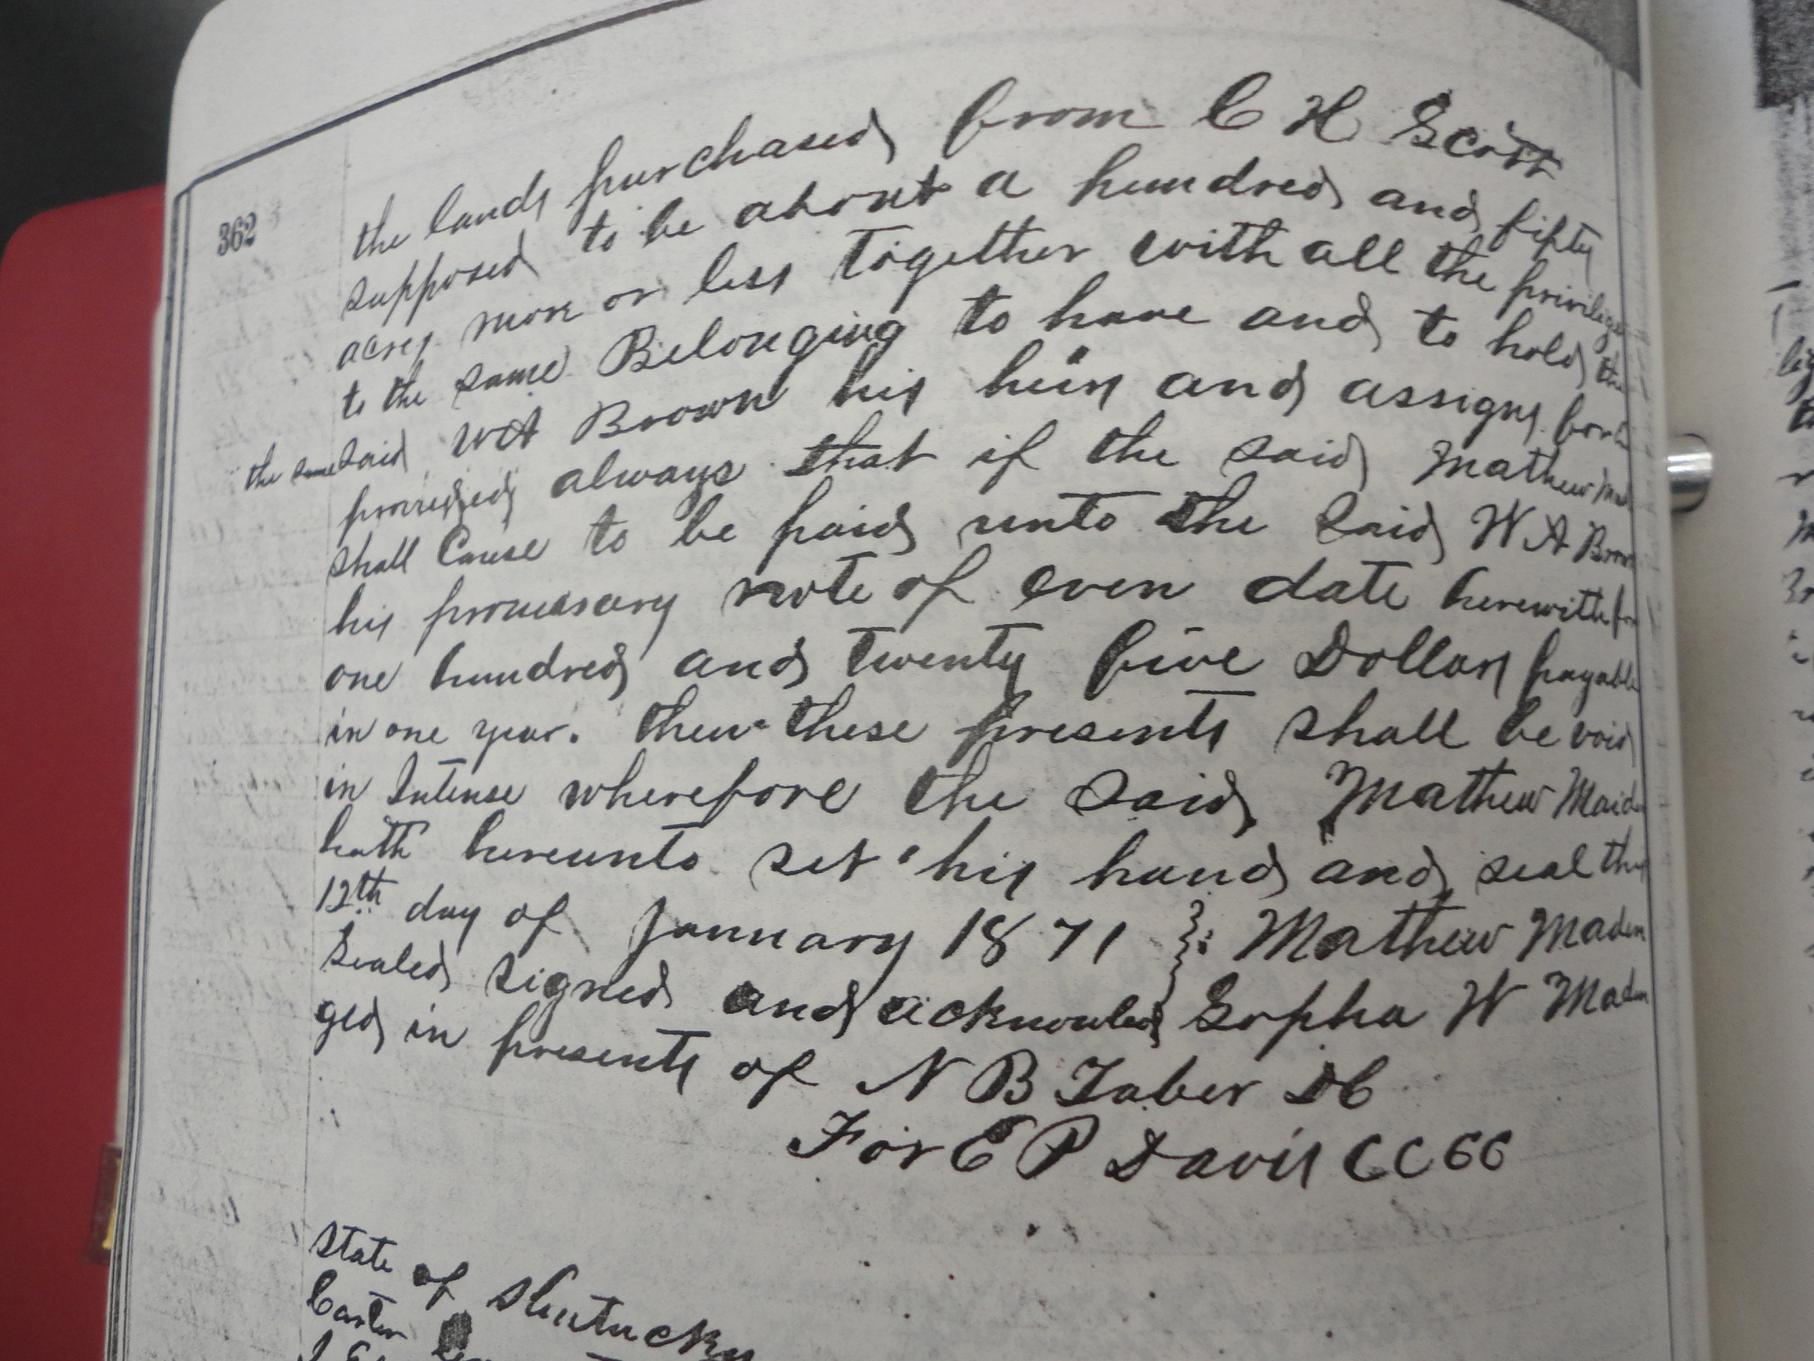 362
the lands purchased from C H Scott
supposed to be about a hundred and fifty
acres more or less together with all the privileges
to the same Belonging to have and to hold
the same said W A Brown his heirs and assigns
provided always that if the said Mathew
shall Cause to be paid unto the said W A Brown
his promissary note of even date herewith for
one hundred and twenty five Dollars payable
in one year. then these presents shall be void
in Intense wherefore the said Mathew Maiden
hath hereunto set his hand and seal this
12th day of January 1871 } Mathew Maden
Sealed signed and acknowled } Sopha W Maden
ged in presents of N B Taber DC
For E P Davis CCCC
State of Kentucky
Carter